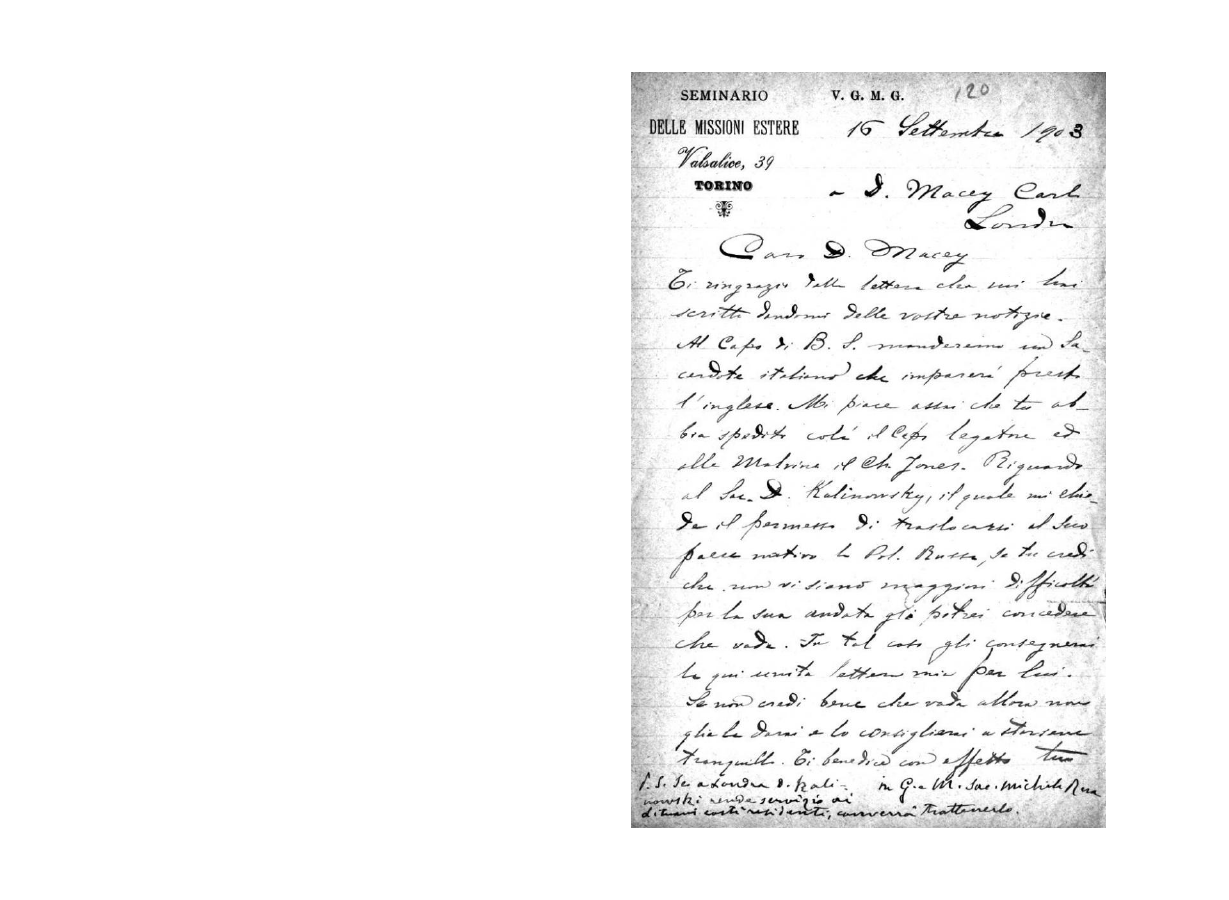 SEMINARIO
DELLE MISSIONI ESTERE
Valsalice, 39
TORINO
V. G. M. G.
120
16 Settembre 1903
a D. Macey Carl
Londra
Caro D. Macey
Ti ringrazio della lettera che mi hai
scritto dandomi delle vostre notizie.
Al Capo di B. S. manderemo un Sa-
cerdote italiano che imparerà presto
l'inglese. Mi piace assai che tu ab-
bia spedito colà il Capo legatore ed
alle Malvine il Ch. Jones. Riguardo
al Sac. D. Kalinowsky, il quale mi chie-
de il permesso di traslocarsi al suo
paese nativo la Pol. Russa, se tu credi
che non vi siano maggiori difficoltà
per la sua andata gli potrei concedere
che vada. In tal caso gli consegnerai
la qui unita lettera mia per lui.
Se non credi bene che vada allora non
glie la darai e lo consiglierai a starsene
tranquillo. Ti benedica con affetto tuo
in G. e M. Sac. Michele Rua
P. S. Se a Londra D. Kali-
nowski rende servizio ai
Lituani costì residenti, converrà trattenerlo.